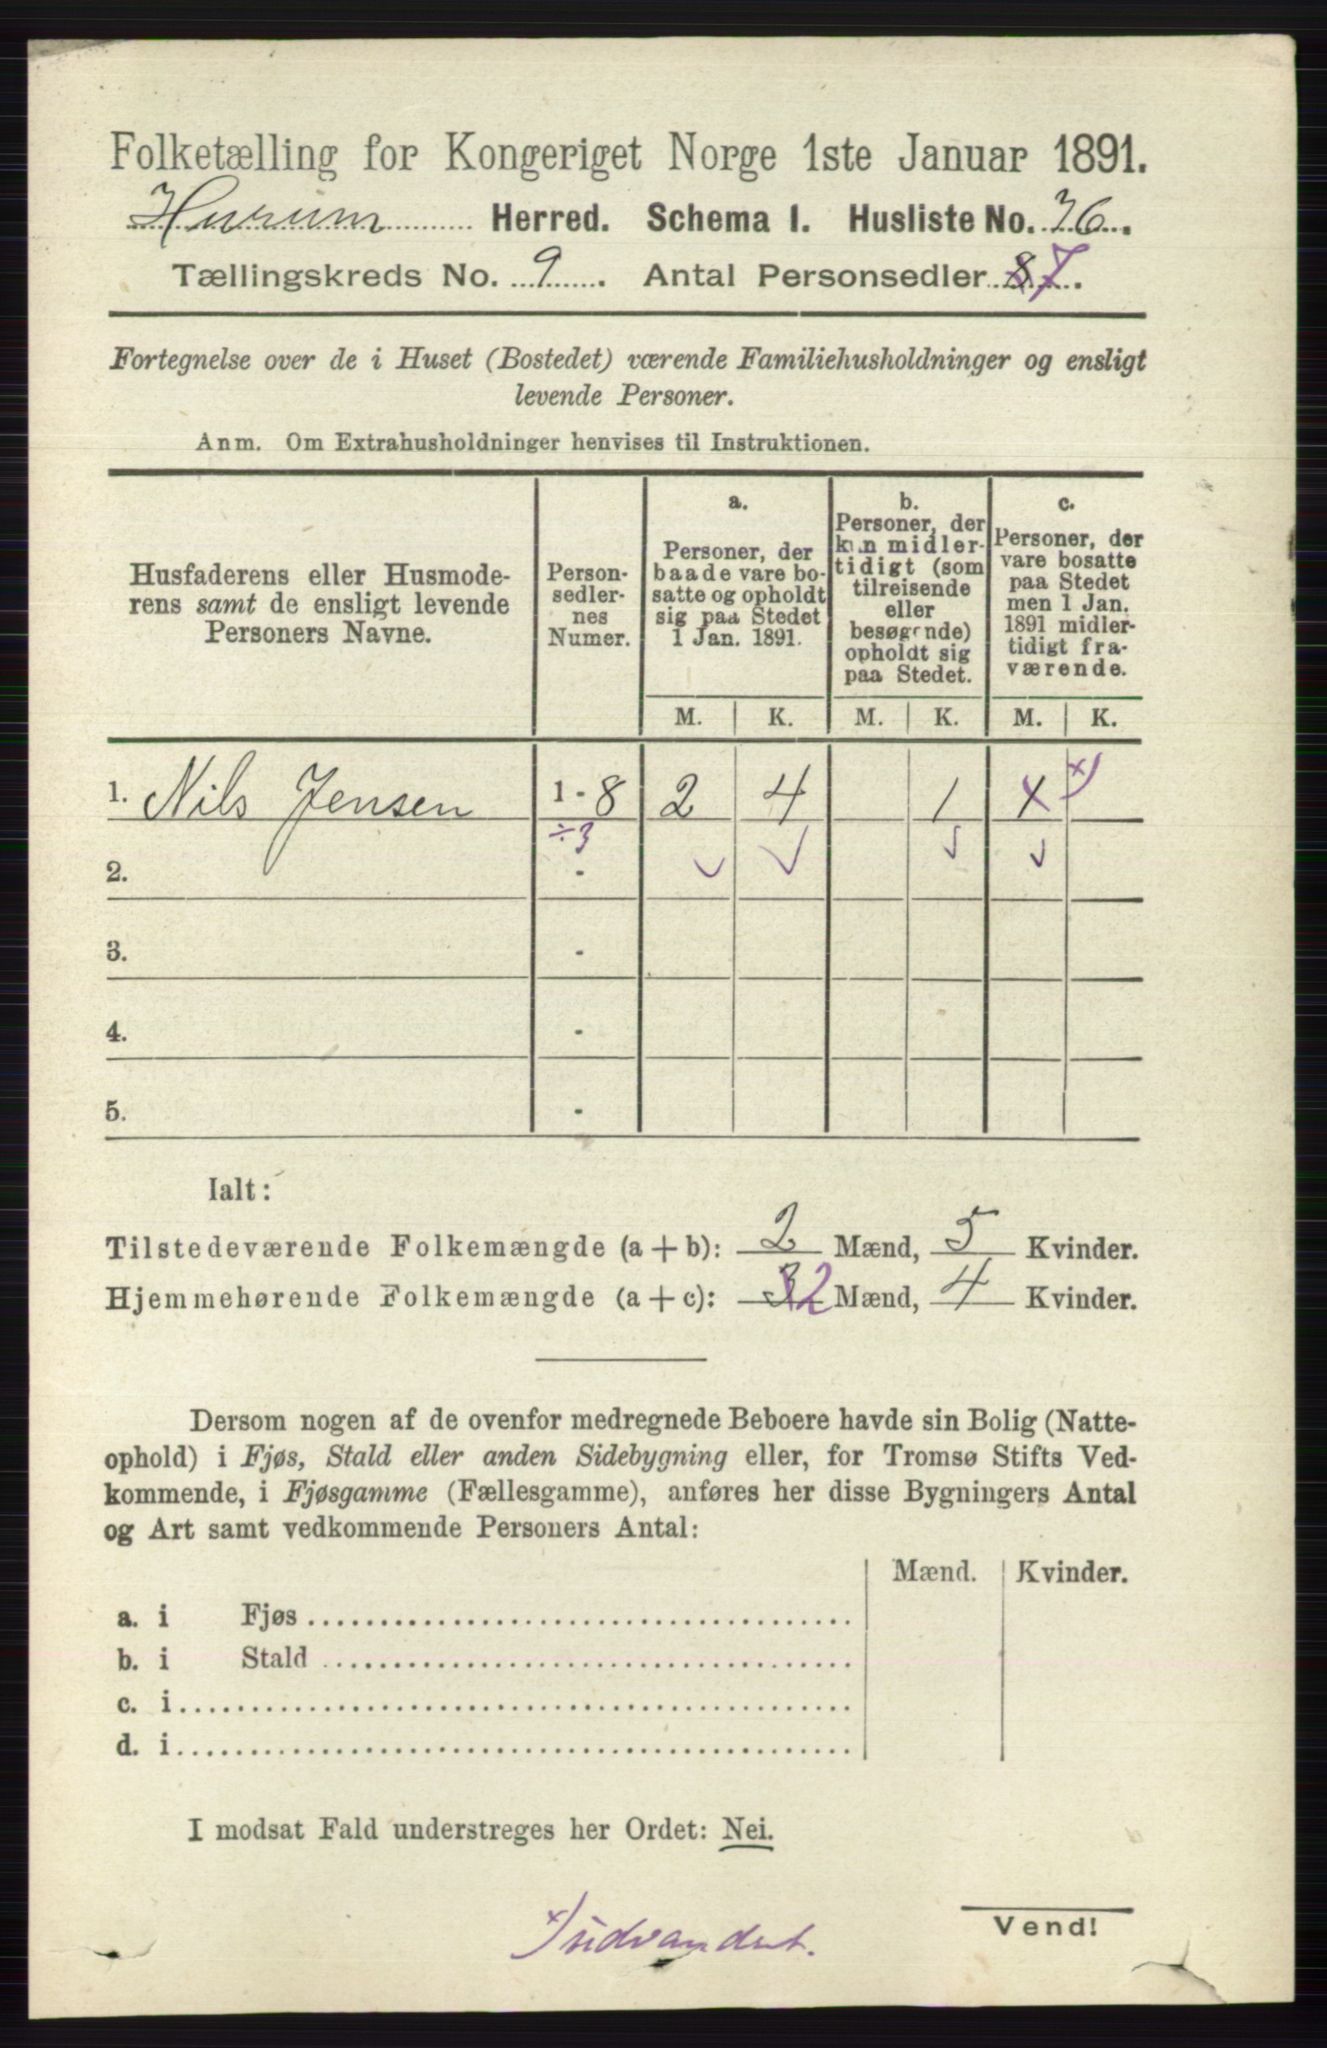 Folketælling for Kongeriget Norge 1ste Januar 1891.
Hurum Herred. Schema I. Husliste No. 36.
Tællingskreds No. 9. Antal Personsedler 8 7.
Fortegnelse over de i Huset (Bostedet) værende Familiehusholdninger og ensligt
levende Personer.
Anm. Om Extrahusholdninger henvises til Instruktionen.
Husfaderens eller Husmode-
rens samt de ensligt levende
Personers Navne.
Person-
sedler-
nes
Numer.
a.
Personer, der
baade vare bo-
satte og opholdt
sig paa Stedet
1 Jan. 1891.
b.
Personer, der
kun midler-
tidigt (som
tilreisende
eller
besøgende)
opholdt sig
paa Stedet.
c.
Personer, der
vare bosatte
paa Stedet
men 1 Jan.
1891 midler-
tidigt fra-
værende.
M. K. M. K. M. K.
1. Nils Jensen 1 - 8 2 4 1 x)
÷3
2. -
3. -
4. -
5. -
Ialt:
Tilstedeværende Folkemængde (a + b): 2 Mænd, 5 Kvinder.
Hjemmehørende Folkemængde (a + c): 3 2 Mænd, 4 Kvinder.
Dersom nogen af de ovenfor medregnede Beboere havde sin Bolig (Natte-
ophold) i Fjøs, Stald eller anden Sidebygning eller, for Tromsø Stifts Ved-
kommende, i Fjøsgamme (Fællesgamme), anføres her disse Bygningers Antal
og Art samt vedkommende Personers Antal:
Mænd. Kvinder.
a. i Fjøs
b. i Stald
c. i
d. i
I modsat Fald understreges her Ordet: Nei.
x) udvandret.
Vend!